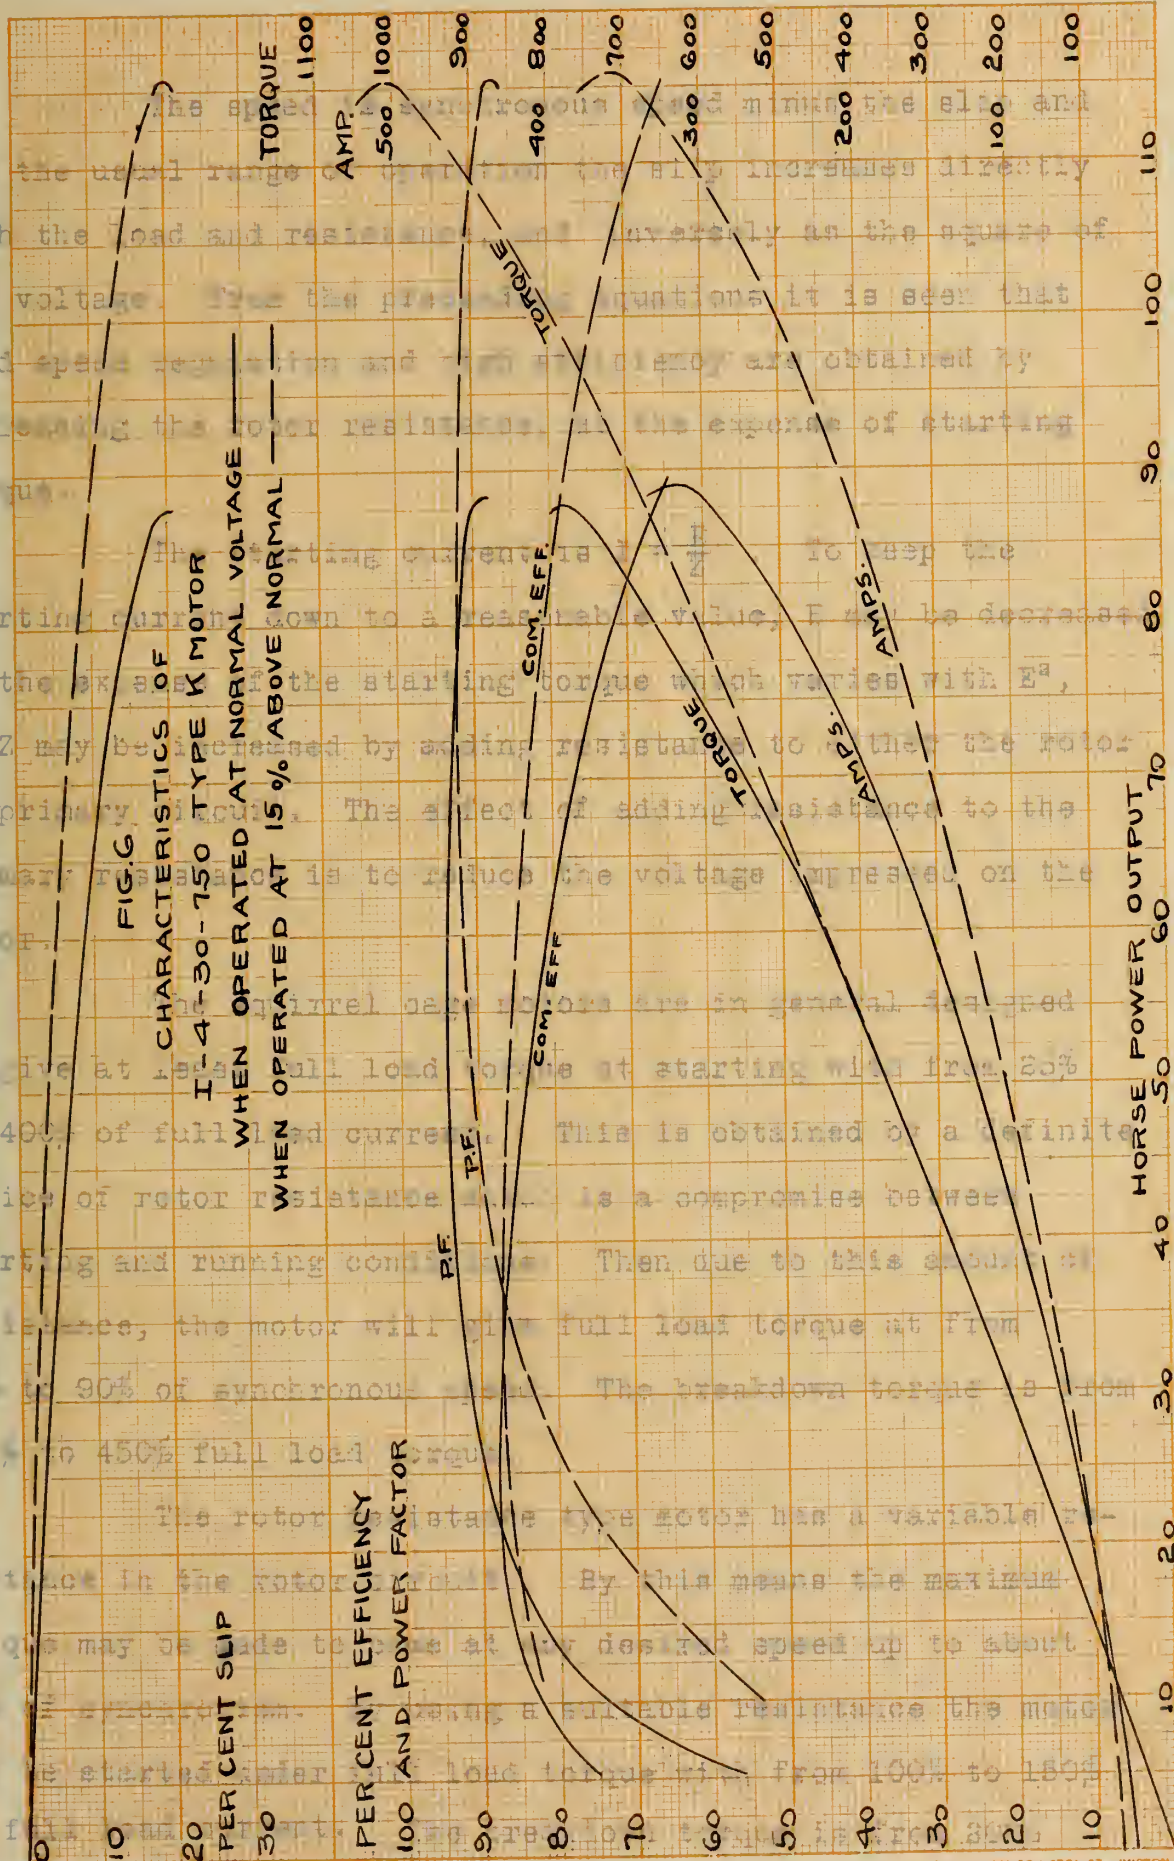 FIG.6
CHARACTERISTICS OF
I-4-30-750 TYPE K MOTOR
WHEN OPERATED AT NORMAL VOLTAGE
WHEN OPERATED AT 15% ABOVE NORMAL
PER CENT SLIP
0
10
20
30
PER CENT EFFICIENCY
AND POWER FACTOR
100
90
80
70
60
50
40
30
20
10
HORSE POWER OUTPUT
10
20
30
40
50
60
70
80
90
100
110
TORQUE
1100
1000
900
800
700
600
500
400
300
200
100
AMP.
500
400
300
200
100
P.F.
P.F.
COM. EFF
COM. EFF.
TORQUE
TORQUE
AMPS.
AMPS.
The speed is synchronous speed minus the slip and
the usual range of operation the slip increases directly
the load and resistance, and inversely as the square of
voltage. From the preceding equations it is seen that
speed regulation and high efficiency are obtained by
the rotor resistance, at the expense of starting
The starting current is I = E/Z. To keep the
current down to a reasonable value, E may be decreased
the expense of the starting torque which varies with E²,
Z may be increased by adding resistance to either the rotor
primary circuit. The effect of adding resistance to the
resistance is to reduce the voltage impressed on the
The squirrel cage motors are in general designed
at least full load torque at starting with from
400% of full load current. This is obtained by a definite
of rotor resistance which is a compromise between
and running conditions. Then due to this amount of
the motor will give full load torque at from
to 90% of synchronous speed. The breakdown torque is from
to 450% full load torque
The rotor resistance type motor has a variable re-
in the rotor circuit. By this means the maximum
may be made to come at any desired speed up to about
synchronism. By using a suitable resistance the motor
started under full load torque with from 100% to 150%